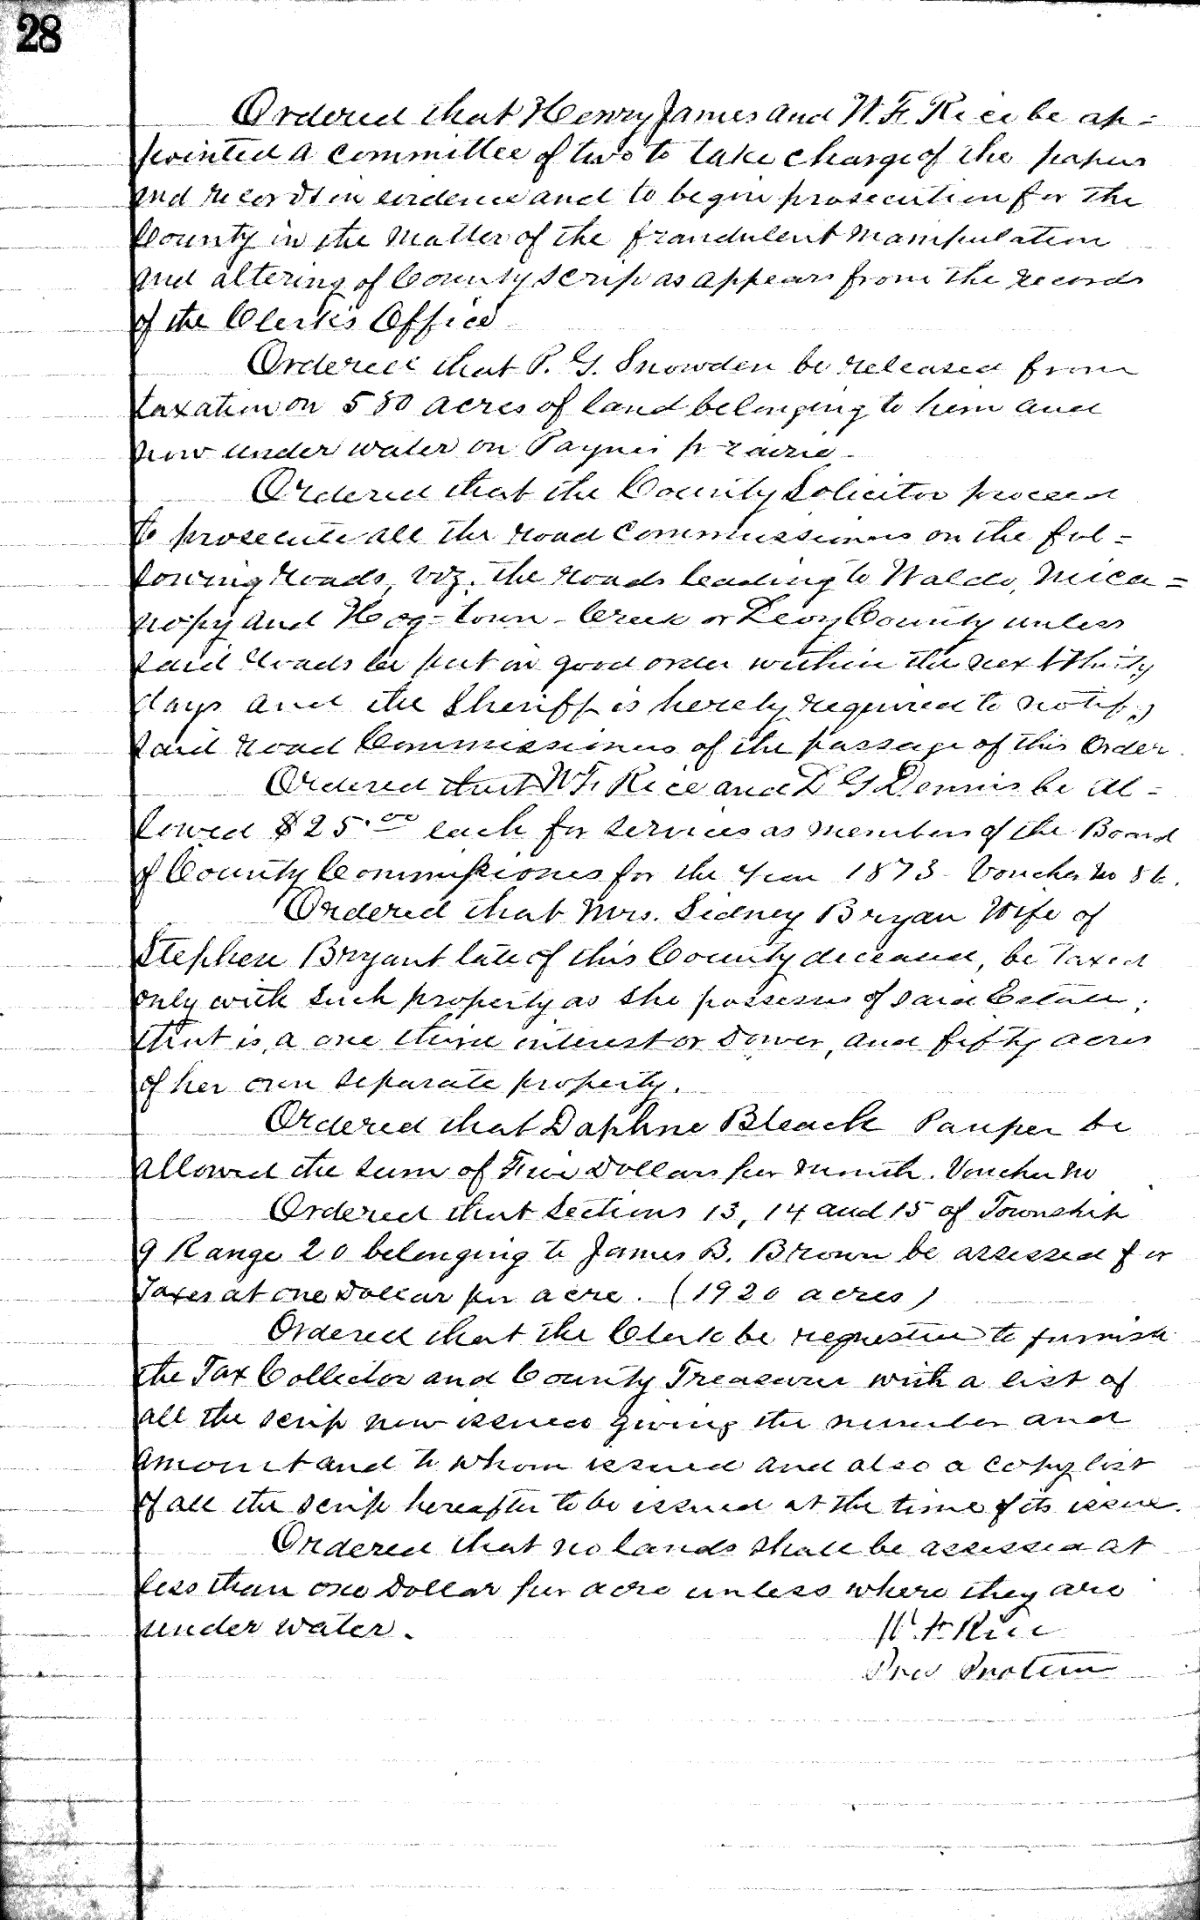 28
Ordered that Henry James and W. F. Rice be ap=
pointed a committee of two to take charge of the papers
and records in evidence and to begin prosecution for the
County in the matter of the fraudulent manipulation
and altering of County scrip as appears from the records
of the Clerk's Office
Ordered that P. G. Snowden be released from
taxation on 580 acres of land belonging to him and
now under water on Paynes prairie.
Ordered that the County Solicitor proceed
to prosecute all the road Commissioners on the fol=
lowing roads, viz. the roads leading to Waldo, Mica=
nopy and Hog-town-Creek or Levy County unless
said roads be put in good order within the next thirty
days and the Sheriff is hereby required to notify
said road Commissioners of the passage of this Order.
Ordered that W. F. Rice and L G Dennis be al=
lowed $25.00 each for services as members of the Board
of County Commissiones for the Year 1873 Voucher No
Ordered that Mrs. Sidney Bryan Wife of
Stephen Bryant late of this County deceased, be Taxed
only with such property as she possesses of said Estate;
that is, a one third interest or Dower, and fifty acres
of her own separate property.
Ordered that Daphne Bleack Pauper be
allowed the sum of Five Dollars per month. Voucher No
Ordered that Sections 13, 14 and 15 of Township
9 Range 20 belonging to James B. Brown be assessed for
Taxes at one Dollar per acre. (1920 acres)
Ordered that the Clerk be requested to furnish
the Tax Collector and County Treasurer with a list of
all the scrip now issued giving the number and
amount and to whom issued and also a copy list
of all the scrip hereafter to be issued at the time of its issue.
Ordered that no lands shall be assessed at
less than one Dollar per acre unless where they are
under water.
W. F. Rice
Pres Protem